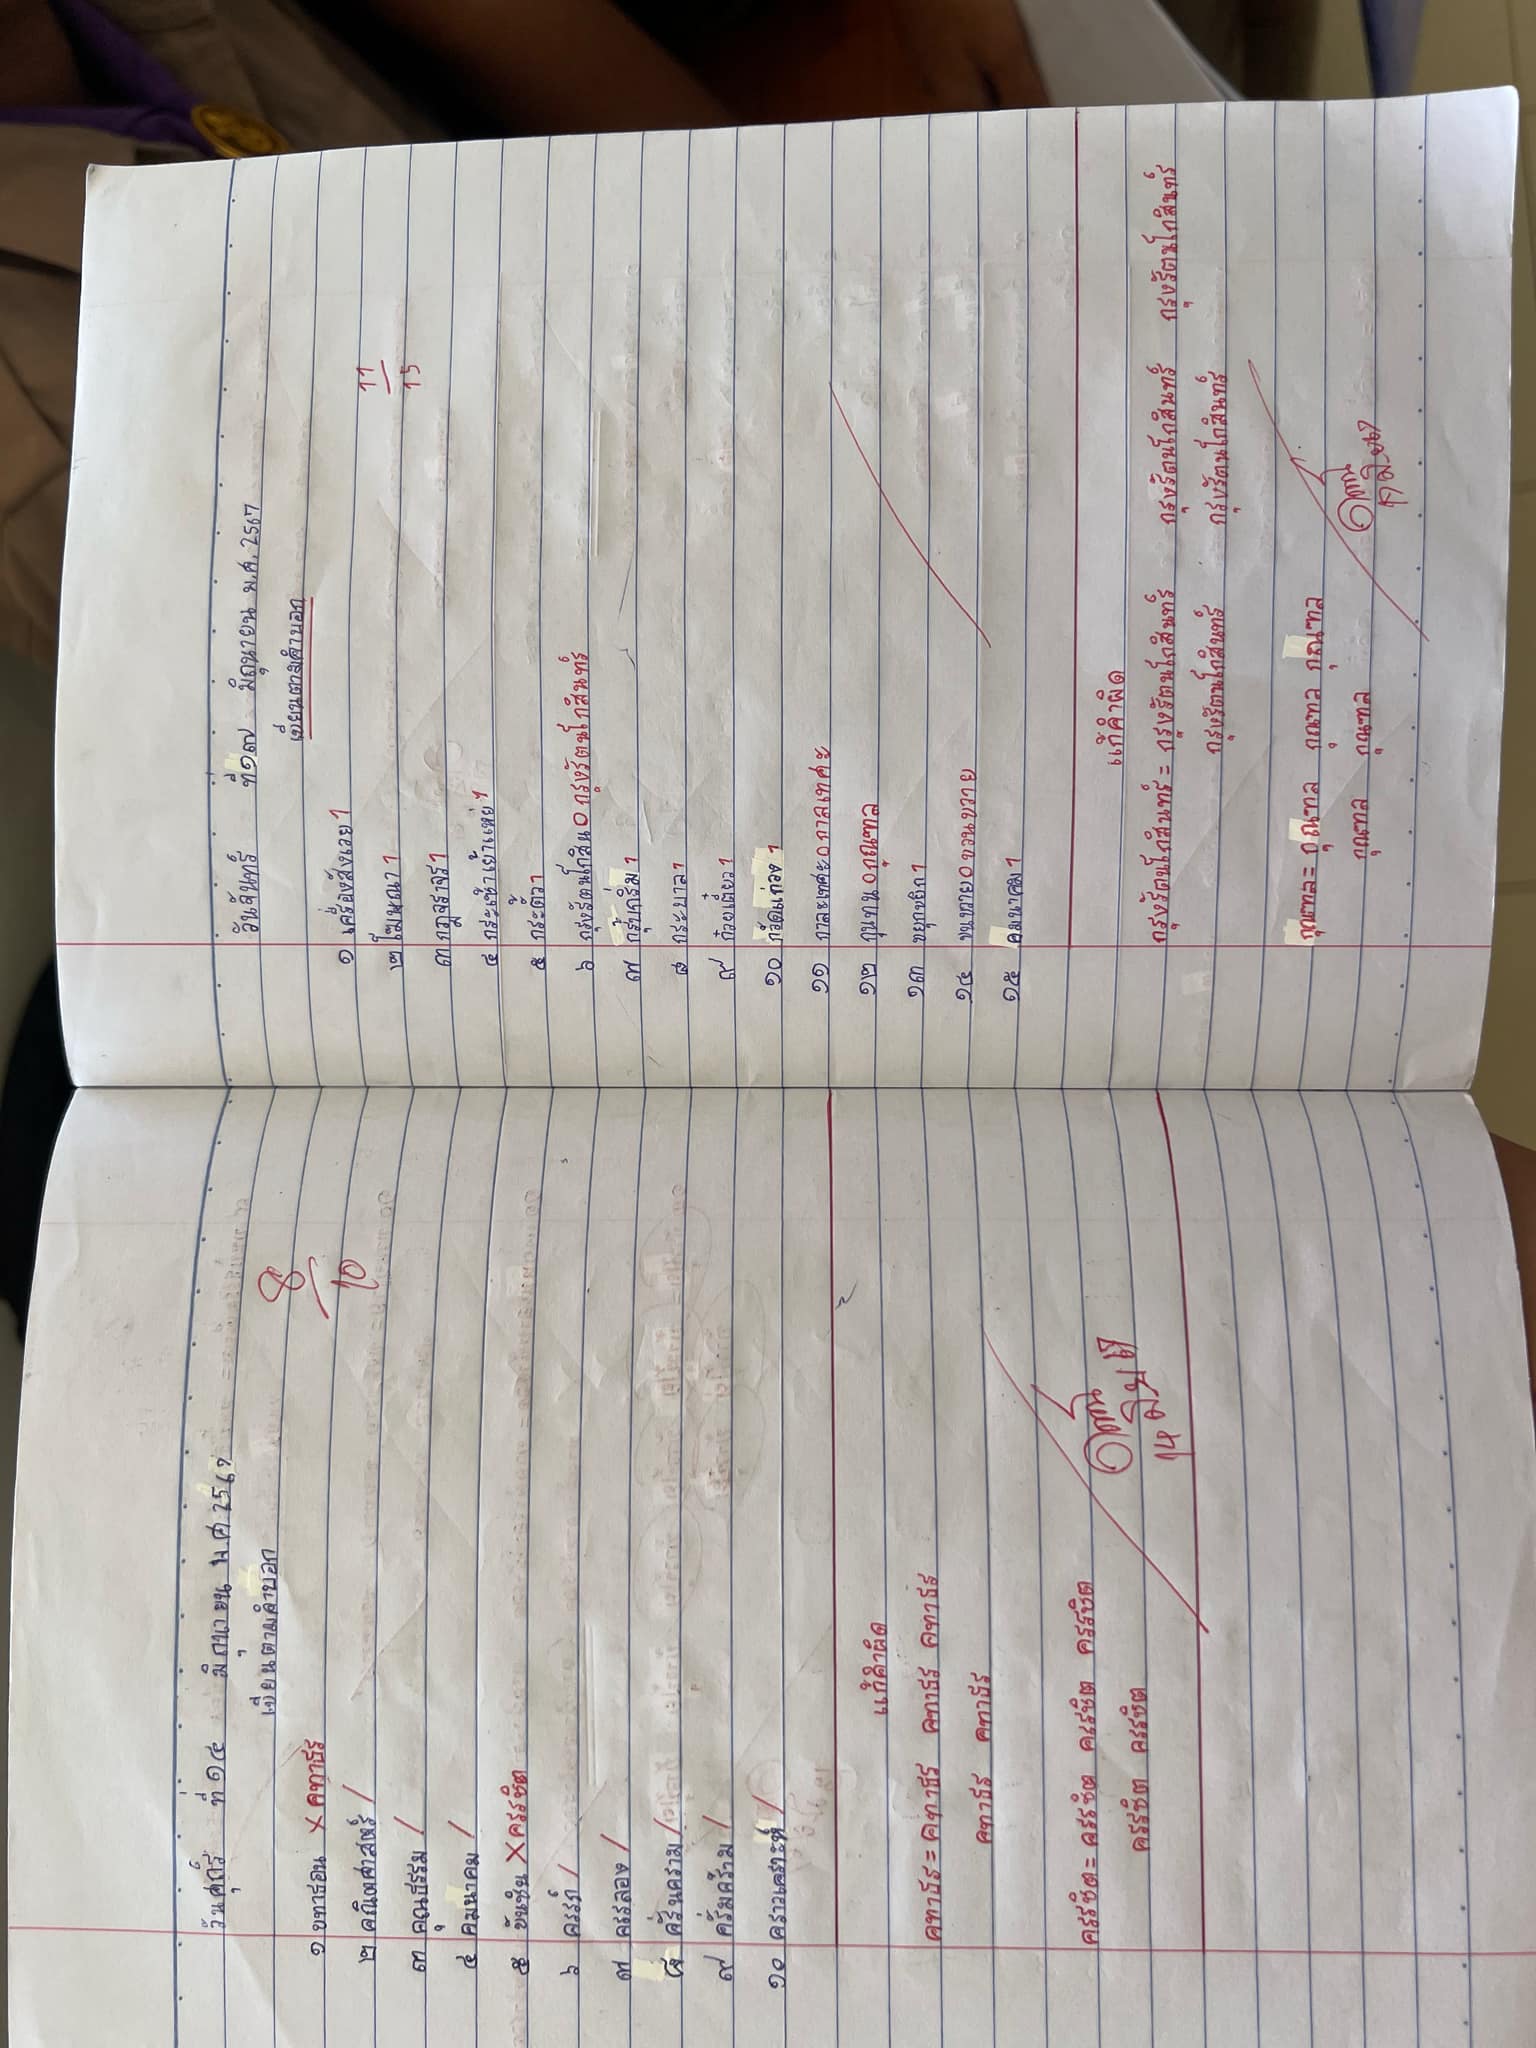 วันศุกร์ ที่ ๑๔ มิถุนายน พ.ศ. 2567
เขียนตามคำบอก
8/10
๑ ขทาธอน × คทาธร
๒ คณิตศาสตร์ /
๓ คุณธรรม /
๔ คมนาคม /
๕ ขันชิน × ครรชิต
๖ ครรภ์ /
๗ ครรลอง /
๘ ครั่นคราม /
๙ ครั่มคร้าม /
๑๐ คราวเคราะห์ /
แก้คำผิด
คทาธร = คทาธร คทาธร คทาธร
คทาธร คทาธร
ครรชิต = ครรชิต ครรชิต ครรชิต
ครรชิต ครรชิต
14 มิ.ย. 67
วันจันทร์ ที่ ๑๗ มิถุนายน พ.ศ. 2567
เขียนตามคำบอก
11/15
๑ เครื่องสังเวย 1
๒ โฆษณา 1
๓ กฎจราจร 1
๔ กระเซ้าเย้าแหย่ 1
๕ กระตั้ว 1
๖ กรุงรัตนโกสิน 0 กรุงรัตนโกสินทร์
๗ กรุ้มกริ่ม 1
๘ กระบาล 1
๙ ก๋วยเตี๋ยว 1
๑๐ กวัดแกว่ง 1
๑๑ กาละเทศะ 0 กาลเทศะ
๑๒ กุนทน 0 กุณฑล
๑๓ ขยุกขยิก 1
๑๔ ขนทวาย 0 ขวนขวาย
๑๕ คมนาคม 1
แก้คำผิด
กรุงรัตนโกสินทร์ = กรุงรัตนโกสินทร์ กรุงรัตนโกสินทร์ กรุงรัตนโกสินทร์
กรุงรัตนโกสินทร์ กรุงรัตนโกสินทร์
กุณฑล = กุณฑล กุณฑล กุณฑล
กุณฑล กุณฑล